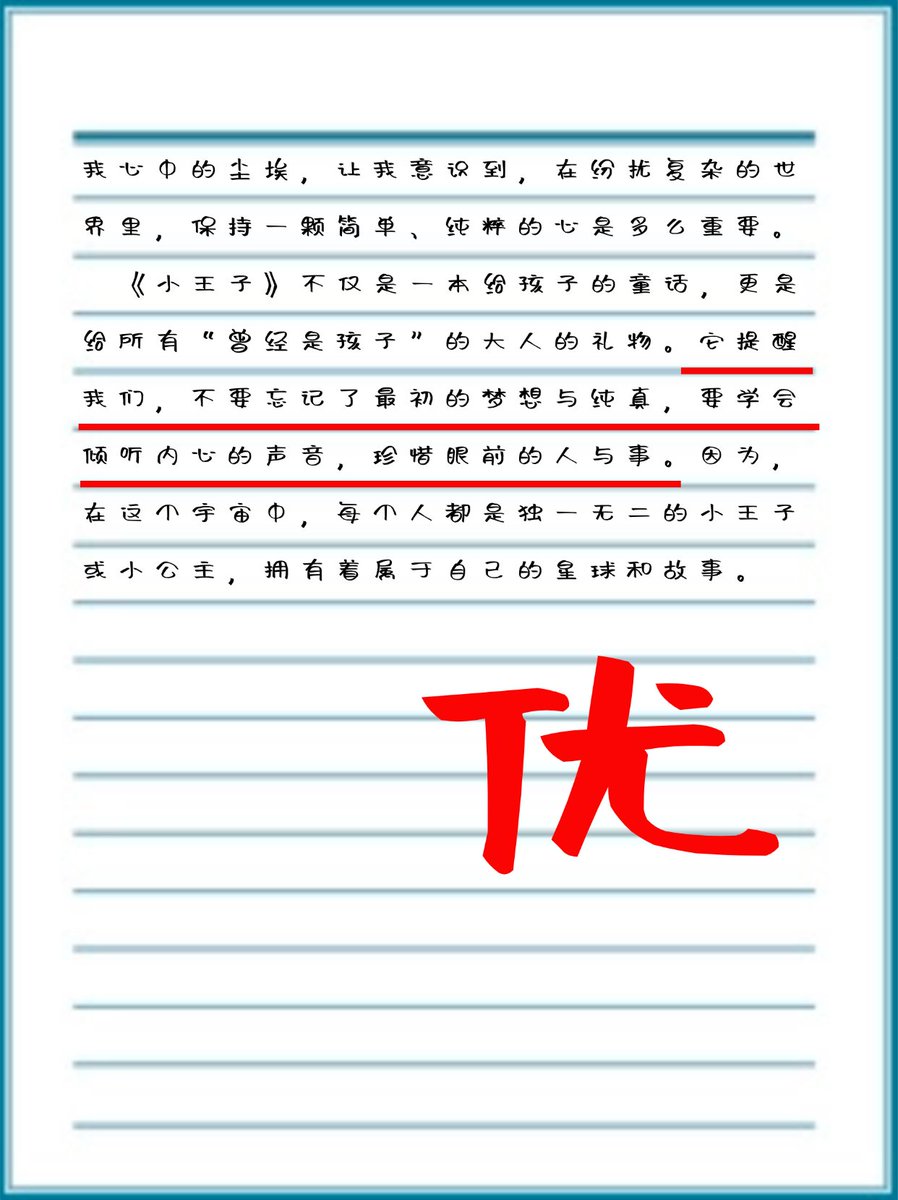 我心中的尘埃，让我意识到，在纷扰复杂的世
界里，保持一颗简单、纯粹的心是多么重要。
《小王子》不仅是一本给孩子的童话，更是
给所有“曾经是孩子”的大人的礼物。它提醒
我们，不要忘记了最初的梦想与纯真，要学会
倾听内心的声音，珍惜眼前的人与事。因为，
在这个宇宙中，每个人都是独一无二的小王子
或小公主，拥有着属于自己的星球和故事。
优